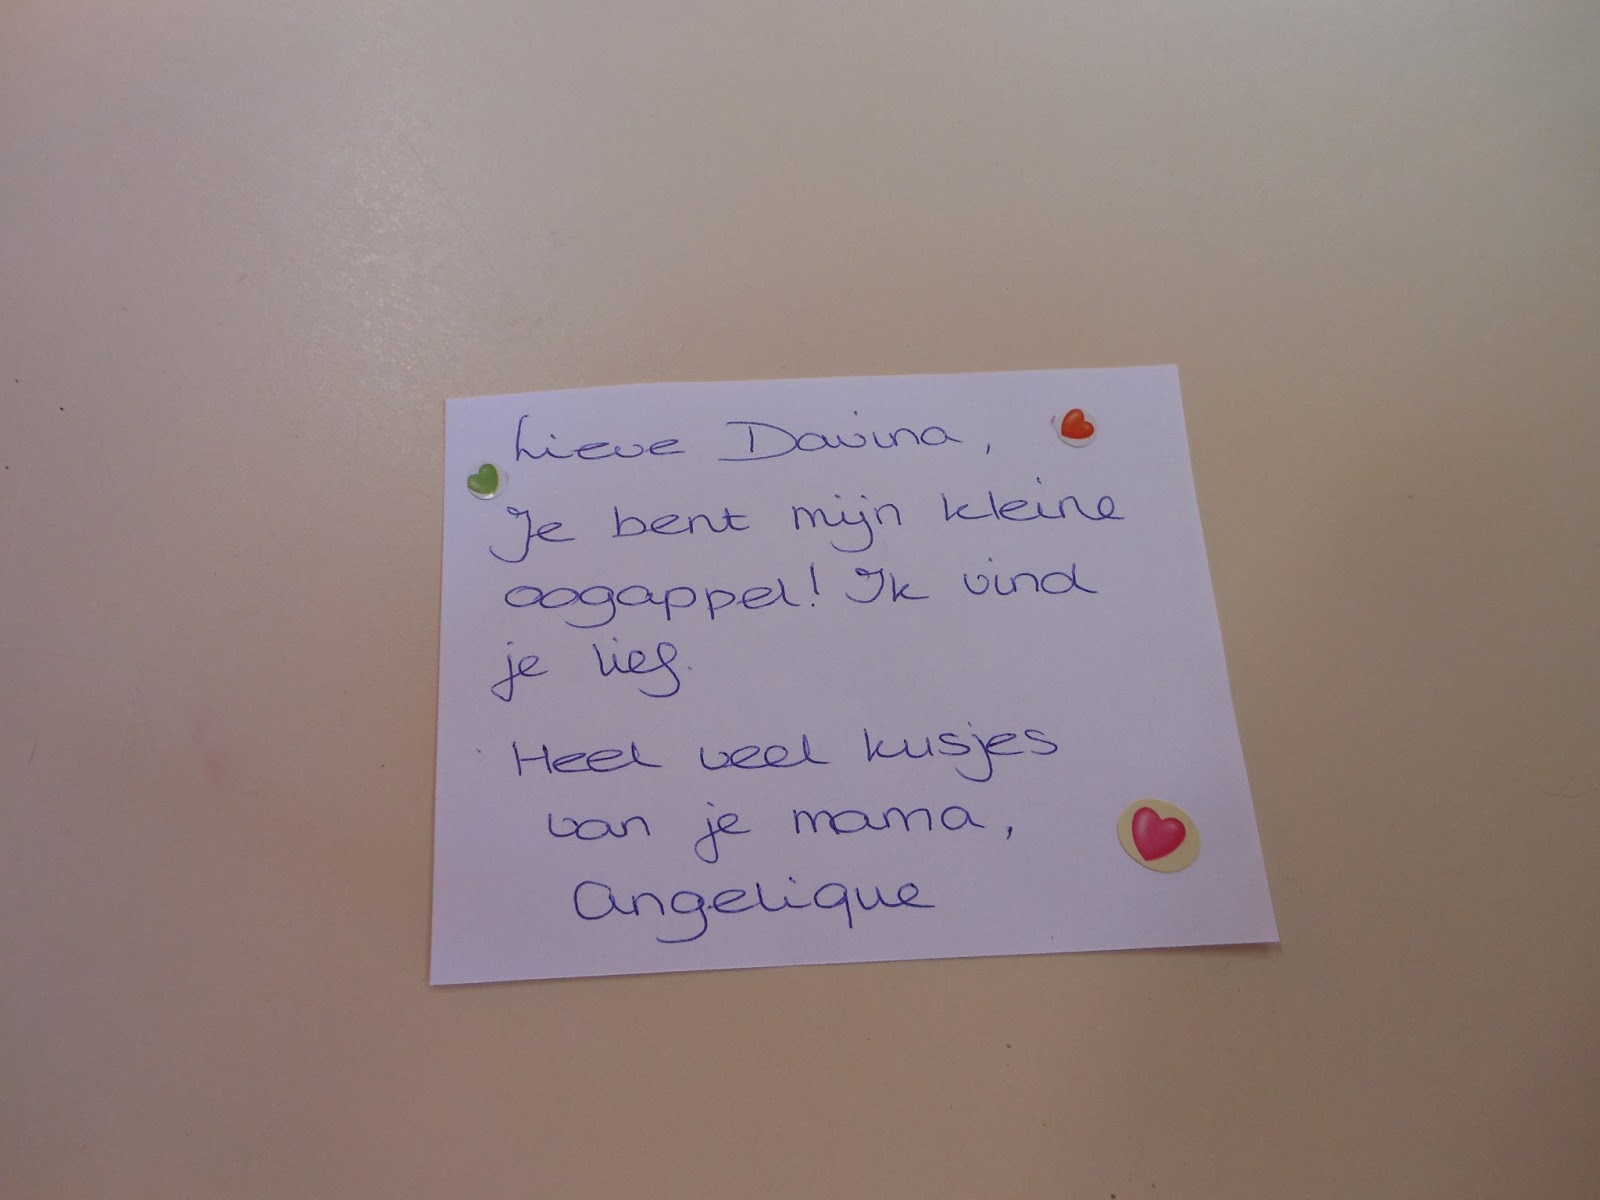 Lieve Davina,
Je bent mijn kleine
oogappel! Ik vind
je lief.
Heel veel kusjes
van je mama,
Angelique